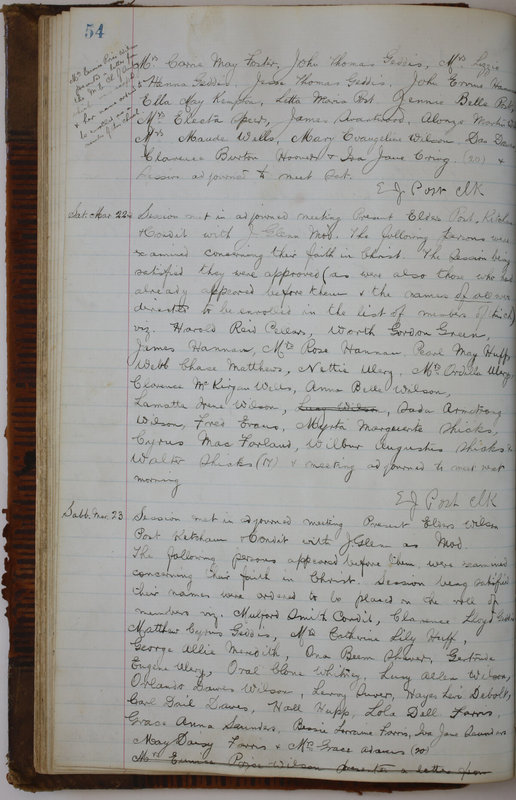 54
Mrs Eunice Price Wilson
presented a letter from
the M.E. Ch
which was
& her name ordered
to be enrolled as a
member of this church
Mrs Carrie May Foster, John Thomas Geddis, Mrs Lizzie
Hanna Geddis, Jesse Thomas Geddis, John Ervine Hannan
Ella May Kempton, Letta Maria Post, Jennie Belle Post,
Mrs Electa Speer, James Alonzo
Mrs Maude Wells, Mary Evangeline Wilson, Dan
Clarence Burton Hoover & Iva Jane Craig. (20) &
Session adjourned to meet Sat.
E J Post Clk
Sat. Mar. 22nd
Session met in adjourned meeting Present Elders Post, Ketcham
& Condit with J. Glenn Mod. The following persons were
examined concerning their faith in Christ. The Session being
satisfied they were approved (as were also those who had
already appeared before them & the names of all were
directed to be enrolled in the list of members of this ch)
viz. Harold Reid Cellars, Worth Gordon Green,
James Hannan, Mrs Rose Hannan, Pearl May Hupp,
Webb Chase Matthews, Nettie Ulery, Mrs Ordella Ulery,
Clarence McKirgan Wells, Anna Belle Wilson,
Lamatta Irene Wilson, Lucy Wilson, Dada Armstrong
Wilson, Fred Evans, Myrta Marguerite Shicks,
Cyrus Mac Farland, Wilbur Augustus Shicks &
Walter Shicks (17) & meeting adjourned to meet next
morning
E J Post Clk
Sabb. Mar. 23
Session met in adjourned meeting Present Elders Wilson
Post Ketcham & Condit with J. Glenn as Mod.
The following persons appeared before them, were examined
concerning their faith in Christ. Session being satisfied
their names were ordered to be placed on the roll of
members viz. Mulford Smith Condit, Clarence Lloyd Geddis
Matthew Cyrus Geddis, Mrs Catherine Lily Huff,
George Allie Meredith, Ona Beem Shawers, Gertrude
Eugene Ulery, Oval Clone Whitney, Lucy Allen Wilson,
Orlando Dawes Wilson, Leroy Auver, Hayes Levi Debolt,
Carl Dail Dawes, Hall Hupp, Lola Dell Farris,
Grace Anna Saunders, Bessie Lorraine Farris, Iva Jane Saunders
May Daisy Farris & Mrs Grace Adams (20)
Mrs Eunice Price Wilson presents a letter from